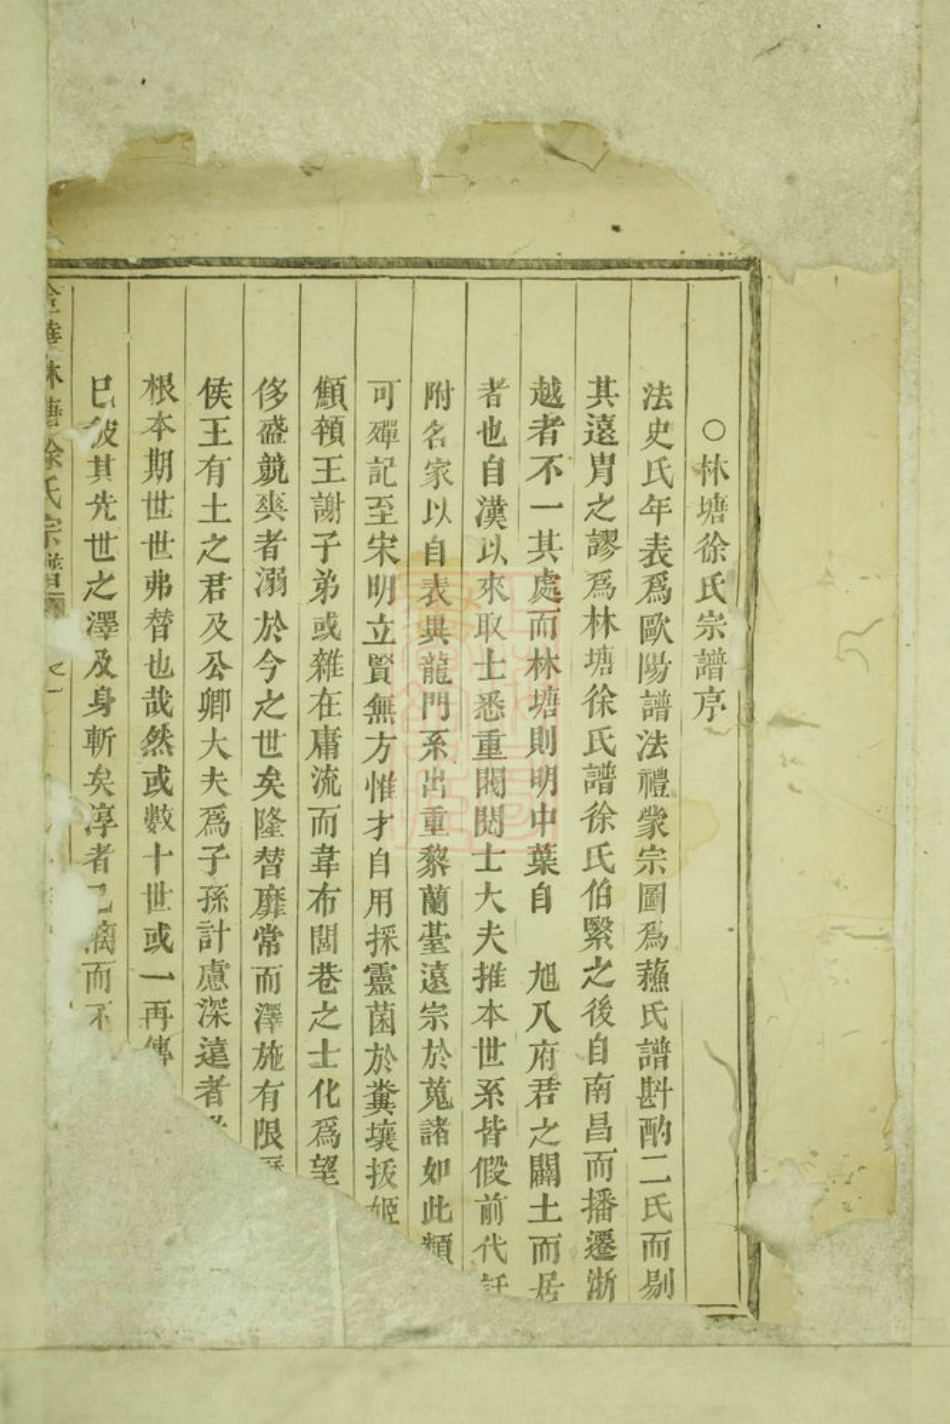 ○林塘徐氏宗譜序
法史氏年表爲歐陽譜法禮蒙宗圖爲蘓氏譜斟酌二氏而剔
其遠冑之謬爲林塘徐氏譜徐氏伯緊之後自南昌而播遷浙
越者不一其處而林塘則明中葉自　旭八府君之闢土而居
者也自漢以來取士悉重閥閱士大夫推本世系皆假前代
附名家以自表異龍門系出重黎蘭臺遠宗於蒐諸如此類
可殫記至宋明立賢無方惟才自用採靈菌於糞壤拔姬
顦顇王謝子弟或雜在庸流而韋布閭巷之士化爲望
侈盛競爽者溺於今之世矣隆替靡常而澤施有限
侯王有土之君及公卿大夫爲子孫計慮深遠者
根本期世世弗替也哉然或數十世或一再傳
巳彼其先世之澤及身斬矣淳者已漓而不
金華林塘徐氏宗譜